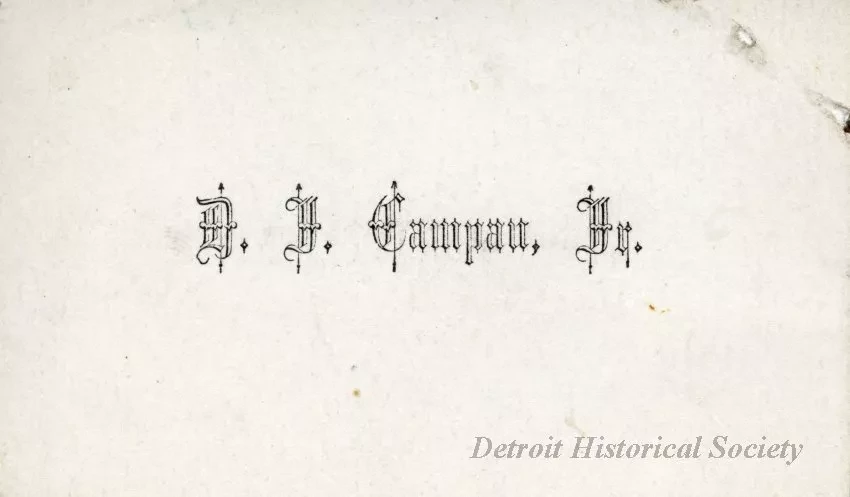 D. J. Campau, Jr.
Detroit Historical Society